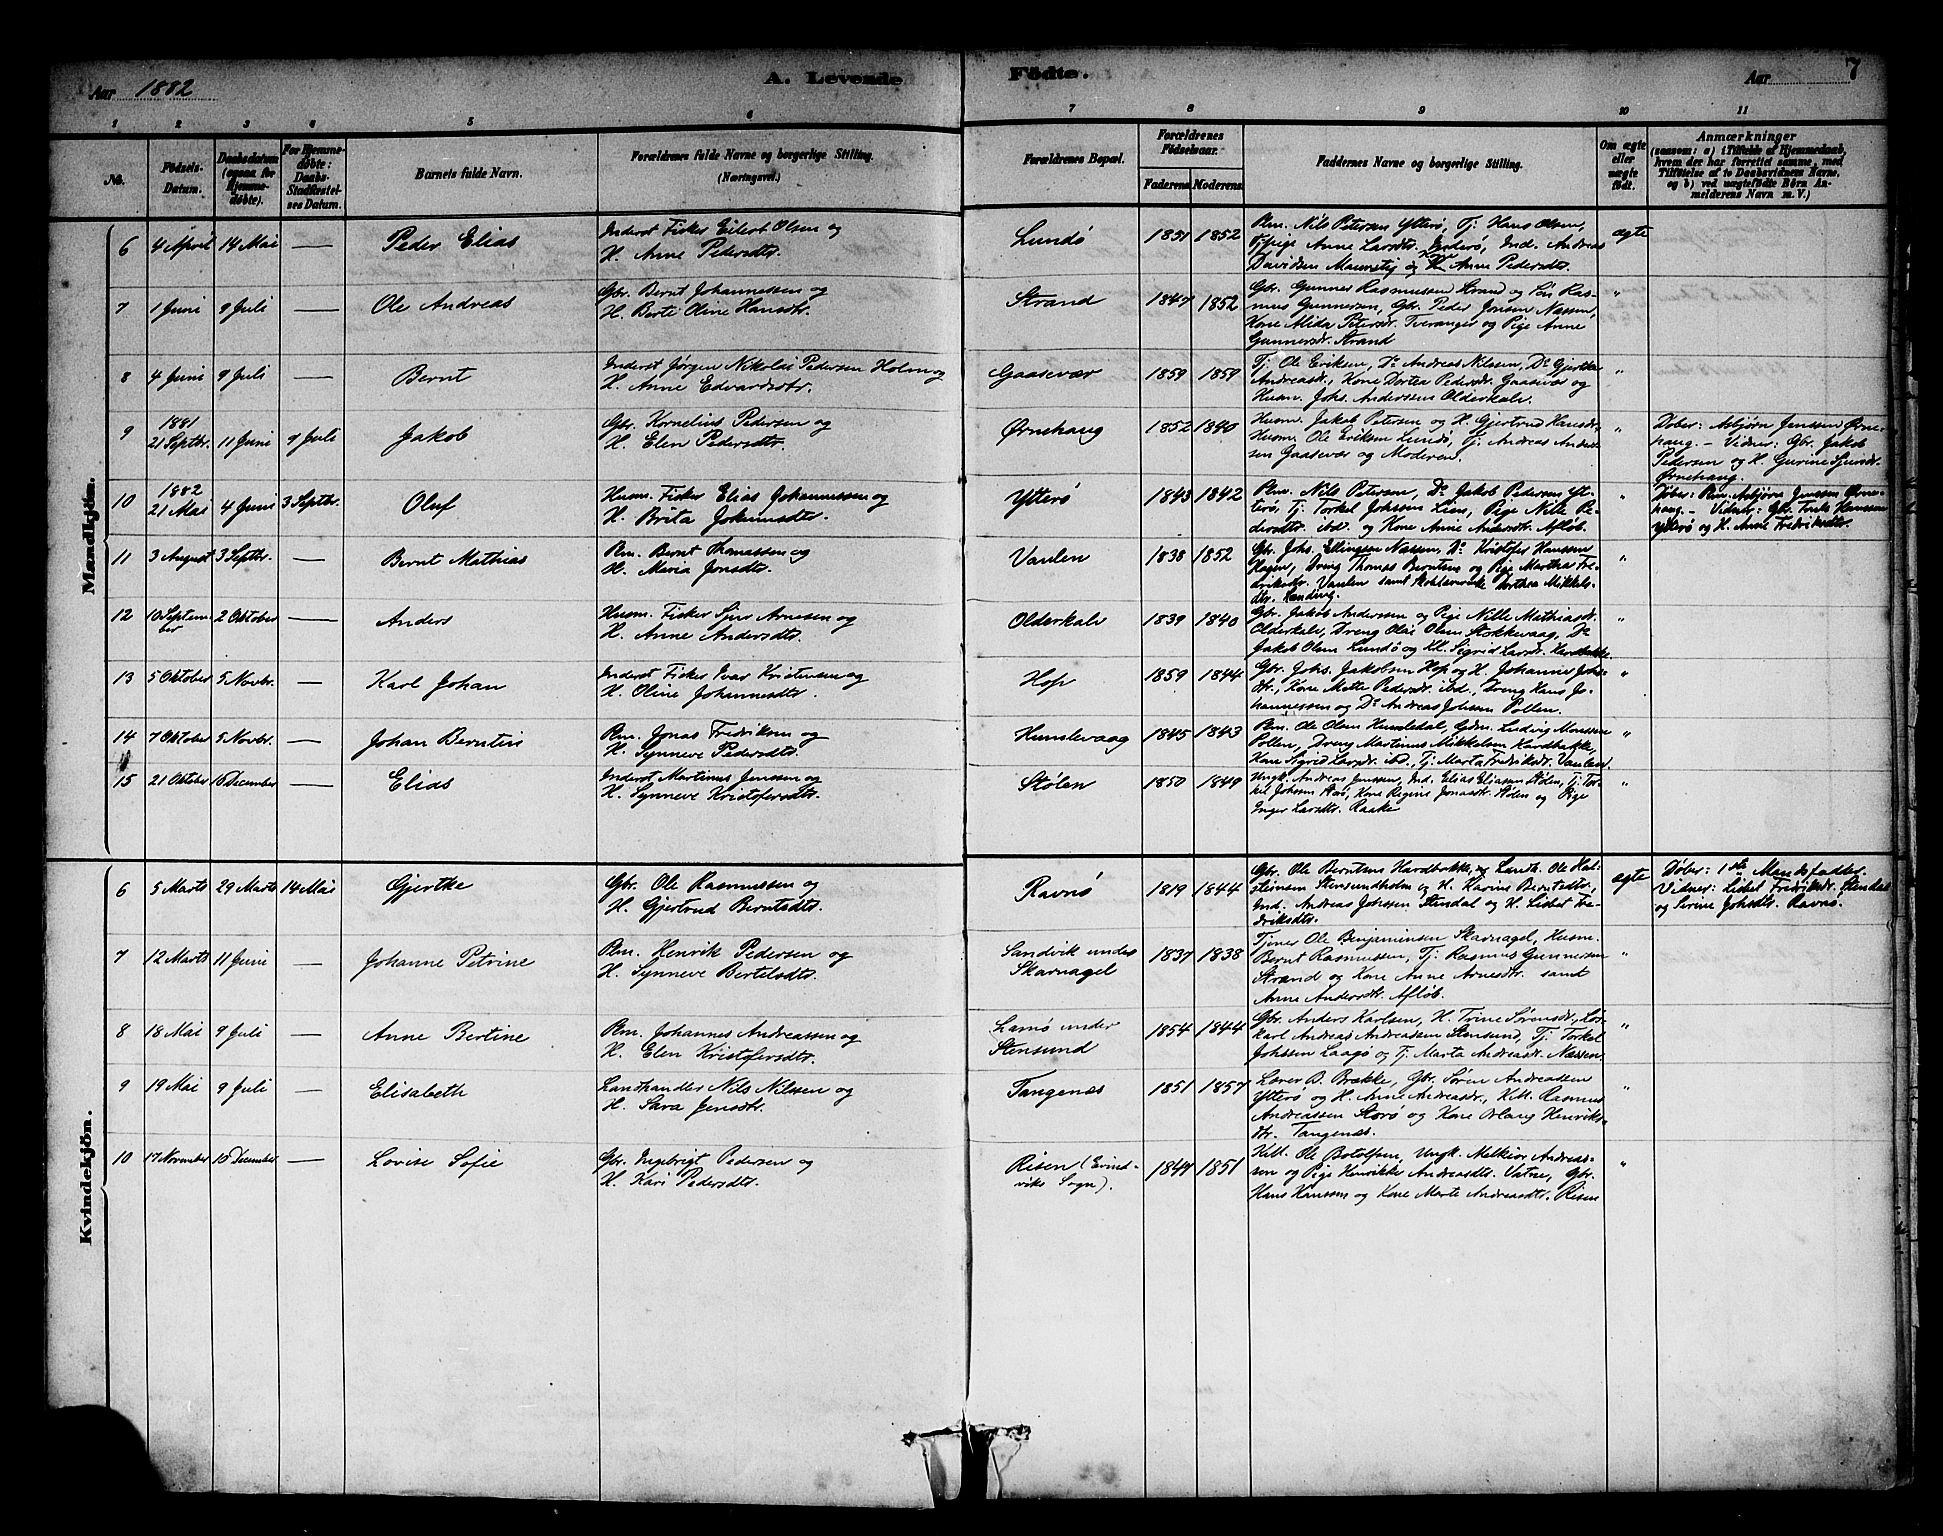 Aar 1882
A. Levende
Fødte.
Aar 7
1 2 3 4 5 6 7 8 9 10 11
No.
Fødsels-
Datum.
Daabsdatum
(ogsaa for
Hjemme-
døbte).
For Hjemme-
døbte:
Daabs-
Stadfæstel-
ses Datum.
Barnets fulde Navn.
Forældrenes fulde Navne og borgerlige Stilling.
(Næringsvei.)
Forældrenes Bopæl.
Forældrenes
Fødselsaar.
Faderens. Moderens.
Faddernes Navne og borgerlige Stilling.
Om ægte
eller
uægte
født.
Anmærkninger
(saasom: a) i Tilfælde af Hjemmedaab,
hvem der har forrettet samme, med
Tilføielse af to Daabsvidners Navne,
og b) ved uægtefødte Børn An-
melderens Navn m. V.)
Mandkjön.
6 4 April 14 Mai — Peder Elias
Inderst Fisker Eilert Olsen og
H. Anne Pedersdtr.
Lundø 1851 1852
Pm. Nils Petersen Ytterø, Tj. Hans Olsen,
Pige Anne Larsdtr. Inderø, Ind. Andreas
Davidsen og Kone Anne Pedersdtr.
ægte
7 1 Juni 9 Juli — Ole Andreas
Gbr. Bernt Johannessen og
H. Berte Oline Hansdtr.
Strand 1847 1852
Gbr. Gunner Rasmussen Strand og Søn Ras-
mus Gunnersen, Gbr. Peder Jonsen Næssen,
Kone Alida Petersdr. Tveranger og Pige Anne
Gunnersdr. Strand
"
8 4 Juni 9 Juli — Bernt
Inderst Jørgen Nikolai Pedersen Holm og
H. Anne Edvardsdtr.
Gaasevær 1859 1859
Tj. Ole Eriksen, Do Andreas Nilsen, Do Gjertke
Andreasdr., Kone Dortea Pedersdr. Gaasevær og
Husm. Johs. Andersen Olderkalv.
"
9 1881
21 Septbr. 11 Juni 9 Juli Jakob
Gbr. Kornelius Pedersen og
H. Elen Pedersdtr.
Ørnehaug 1852 1840
Husm. Jakob Petersen og H. Gjertrud Hansdr.
Husm. Ole Eriksen Lundø, Tj. Andreas Ander-
sen Gaasevær og Moderen.
"
Døber: Asbjørn Jenssen Ørne-
haug. — Vidner: Gbr. Jakob
Pedersen og H. Gurine Sjursdr.
Ørnehaug.
10 1882
21 Mai 4 Juni 3 Septbr. Oluf
Husm. Fisker Elias Johannessen og
H. Brita Johannesdtr.
Ytterø 1843 1842
Pm. Nils Petersen, Do Jakob Pedersen Yt-
terø, Tj. Torkel Johssen Lien, Pige Nille Pe-
dersdtr. ibd. og Kone Anne Andersdtr. Afløb.
"
Døber: Pm. Asbjørn Jenssen Ørne-
haug. — Vidner: Gbr. Hanssen
Ytterø og H. Anne Fredriksdtr.
11 3 August 3 Septbr. — Bernt Mathias
Pm. Bernt Thomassen og
H. Maria Jonsdtr.
Vaulen 1838 1852
Gbr. Johs. Ellingsen Næssen, Do Kristofer Hanssen
Hagen, Dreng Thomas Berntsen og Pige Martha Fre-
driksdtr. Vaulen samt Dorthea Mikkels-
dtr.
"
12 10 Septem-
ber 2 Oktober — Anders
Husm. Fisker Sjur Arnesen og
H. Anne Andersdtr.
Olderkalv 1839 1840
Gbr. Jakob Andersen og Pige Nille Mathiasdr.
Olderkalv, Dreng Olai Olsen Stokkevaag, Do
Jakob Olsen Lundø og Kk. Sigrid Larsdr. Hardbakke.
"
13 5 Oktober 5 Novbr. — Karl Johan
Inderst Fisker Ivar Kristensen og
H. Oline Johannesdtr.
Hop 1859 1844
Gbr. Johs. Jakobsen Hop og H. Johanne Johs-
dtr., Kone Mette Pedersdr. ibd., Dreng Hans Jo-
hannessen og Do Andreas Johssen Pollen.
"
14 7 Oktober 5 Novbr. — Johan Berntin
Pm. Jonas Fredriksen og
H. Synneve Pedersdtr.
Humlevaag 1845 1843
Pm. Ole Olsen Humledal, Gdm. Ludvig Monssen
Pollen, Dreng Martinus Mikkelsen Hardbakke,
Kone Sigrid Larsdr. ibd., Tj. Marta Fredriksdr. Vaulen
"
15 21 Oktober 10 December — Elias
Inderst Martinus Jenssen og
H. Synneve Kristofersdtr.
Stølen 1850 1849
Ungk. Andreas Jenssen, Ind. Elias Eliassen Stølen, Tj. Tor-
kel Johssen Storø, Kone Regine Jonasdtr. Stølen og Pige
Inger Larsdtr. Raake
"
Kvindekjön.
6 5 Marts 29 Marts 14 Mai Gjertke
Gbr. Ole Rasmussen og
H. Gjertrud Berntsdtr.
Ravnø 1819 1844
Gbr. Ole Berntsen Hardbakke, og Landh. Ole Hal-
steinsen Stensundholm og H. Karine Berntsdtr.,
Ind. Andreas Johssen Stendal og H. Lisbet Fre-
driksdtr.
ægte
Døber: 1ste Mandsfadder.
Vidner: Lisbet Fredriksdr. Stendal
og Serine Johsdtr. Ravnø.
7 12 Marts 11 Juni — Johanne Petrine
Pm. Henrik Pedersen og
H. Synneve Bertelsdtr.
Sandvik under
Skarnagel 1837 1838
Tjener Ole Benjaminsen Skarnagel, Husm.
Bernt Rasmussen, Tj. Rasmus Gunnersen
Strand og Kone Anne Arnesdtr. samt
Anne Andersdtr. Afløb.
"
8 18 Mai 9 Juli — Anne Bertine
Pm. Johannes Andreassen og
H. Elen Kristofersdtr.
Lamø under
Stensund 1854 1844
Gbr. Anders Karlsen, H. Trine Sørensdr., Los-
karl Andreas Andreassen Stensund, Tj. Torkel
Johssen Laagø og Tj. Marta Andreasdr. Næssen.
"
9 19 Mai 9 Juli — Elisabeth
Landhandler Nils Nilssen og
H. Sara Jensdtr.
Tangenæs 1851 1857
Lærer B. Brække, Gbr. Søren Andreassen
Ytterø og H. Anne Andreasdr., Kell. Rasmus
Andreassen Storø og Kone Henriks-
dtr. Tangenæs.
"
10 17 November 10 December — Lovise Sofie
Gbr. Ingebrigt Pedersen og
H. Kari Pedersdtr.
Risen (Evind-
viks Sogn). 1849 1851
Kell. Ole Botolfsen, Ungk. Melkior Andreas-
sen og Pige Henrikke Andreasdtr. Vatne, Gbr.
Hans Hanssen og Kone Marte Andreasdtr. Risen
"